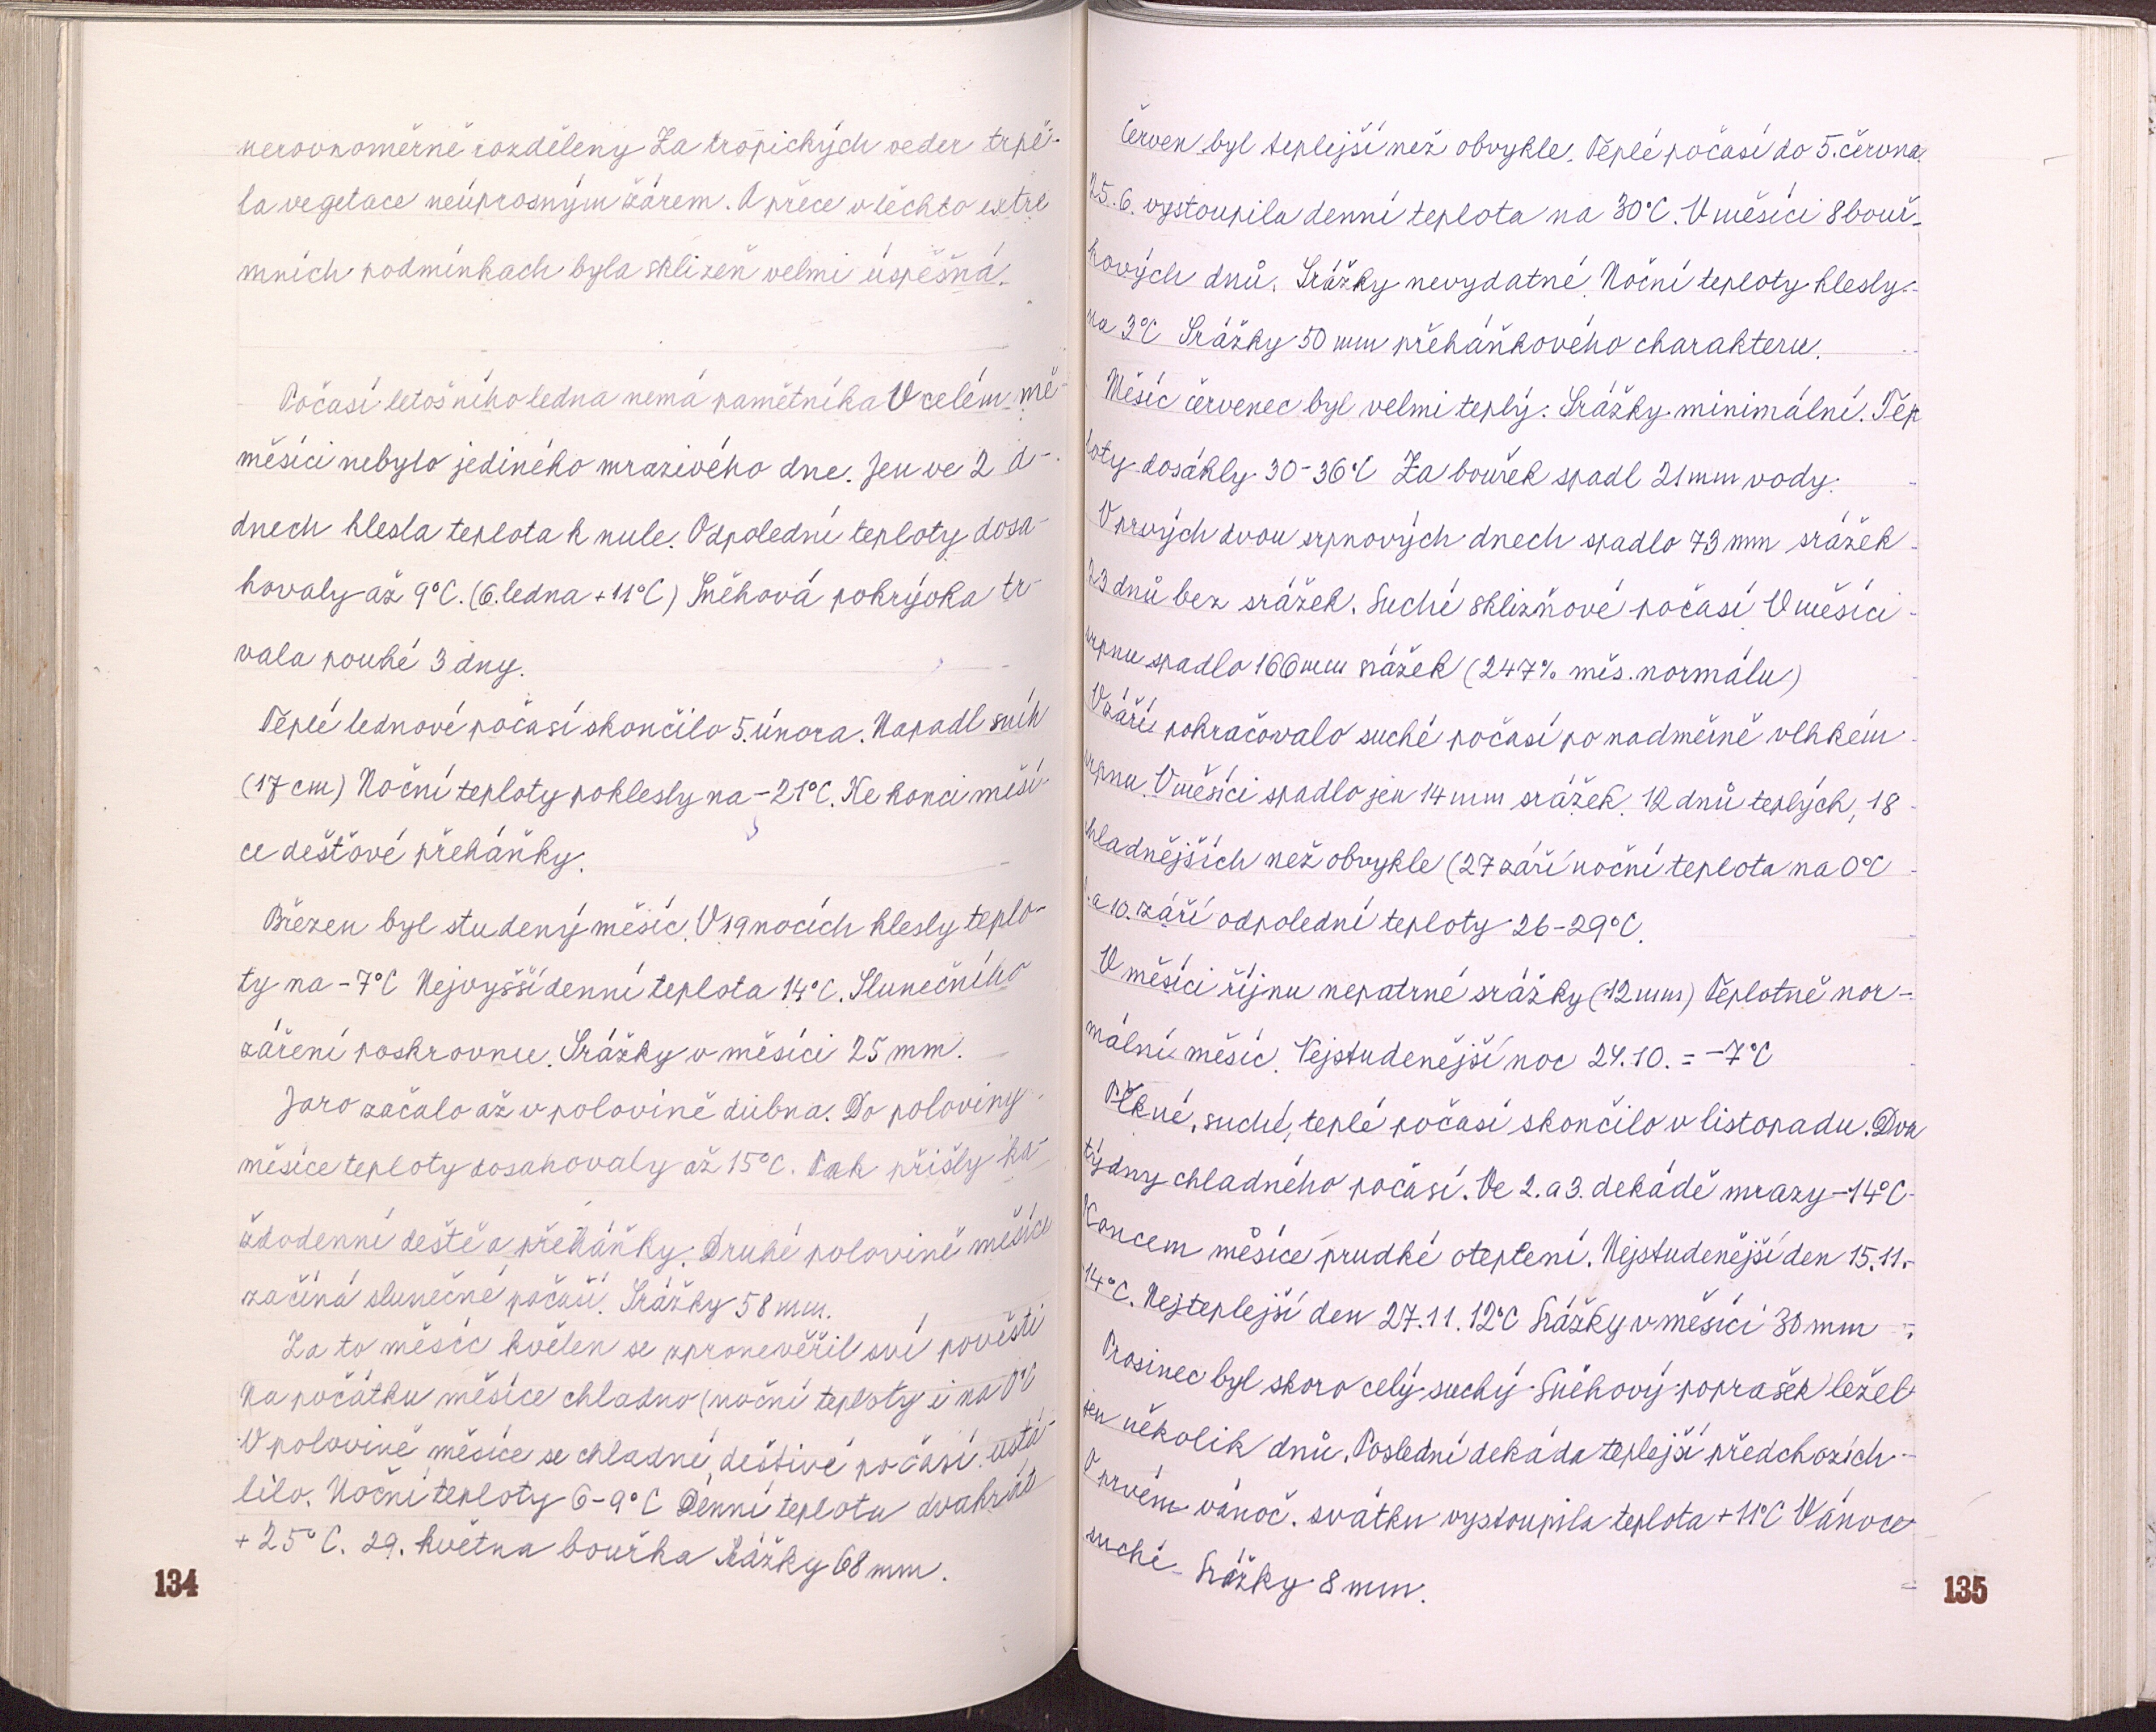 nerovnoměrně rozděleny Za tropických veder trpě-
la vegetace neúprosným žárem. A přece v těchto extré
mních podmínkach byla sklizeň velmi úspěšná.
Počasí letošního ledna nemá pamětníka V celém mě-
měsíci nebylo jediného mrazivého dne. Jen ve 2 d-
dnech klesla teplota k nule. Odpolední teploty dosa-
hovaly až 9°C. (6. ledna +11°C) Sněhová pokrývka tr-
vala pouhé 3 dny.
Teplé lednové počasí skončilo 5. února. Napadl sníh
(17 cm) Noční teploty poklesly na -21°C. Ke konci měsí-
ce dešťové přeháňky.
Březen byl studený měsíc. V 19 nocích klesly teplo-
ty na -7°C Nejvyšší denní teplota 14°C. Slunečního
záření poskrovnu. Srážky v měsíci 25 mm.
Jaro začalo až v polovině dubna. Do poloviny
měsíce teploty dosahovaly až 15°C. Pak přišly ka-
ždodenní deště a přeháňky. Druhé polovině měsíce
začíná slunečné počasí. Srážky 58 mm.
Za to měsíc květen se zpronevěřil své pověsti
Na počátku měsíce chladno (noční teploty i na 0°C
V polovině měsíce se chladné, deštivé počasí ustá-
lilo. Noční teploty 6-9°C Denní teplota dvakrát
+25°C. 29. května bouřka Srážky 68 mm.
134
Červen byl teplejší než obvykle. Teplé počasí do 5. června.
25.6. vystoupila denní teplota na 30°C. V měsíci 8 bouř-
kových dnů. Srážky nevydatné. Noční teploty klesly
na 3°C Srážky 50 mm přeháňkového charakteru.
Měsíc červenec byl velmi teplý. Srážky minimální. Tep
loty dosáhly 30-36°C Za bouřek spadl 21 mm vody.
V prvých dvou srpnových dnech spadlo 73 mm srážek
23 dnů bez srážek. Suché sklizňové počasí V měsíci
srpnu spadlo 166 mm srážek (247% měs. normálu)
V září pokračovalo suché počasí po nadměrně vlhkém
srpnu. V měsíci spadlo jen 14 mm srážek. 12 dnů teplých, 18
chladnějších než obvykle (27 září noční teplota na 0°C
a 10. září odpolední teploty 26-29°C.
V měsíci říjnu nepatrné srážky (12 mm) Teplotně nor-
mální měsíc. Nejstudenější noc 24.10. = -7°C
Pěkné, suché, teplé počasí skončilo v listopadu. Dva
týdny chladného počasí. Ve 2. a 3. dekádě mrazy -14°C
Koncem měsíce prudké oteplení. Nejstudenější den 15.11.-
14°C. Nejteplejší den 27.11. 12°C Srážky v měsíci 30 mm
Prosinec byl skoro celý suchý Sněhový poprašek ležel
jen několik dnů. Poslední dekáda teplejší předchozích
V prvém vánoč. svátku vystoupila teplota +11°C Vánoce
suché - Srážky 8 mm.
135